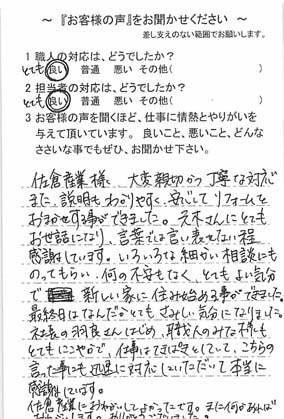 ～『お客様の声』をお聞かせください ～
差し支えのない範囲でお願いします。
1 職人の対応は、どうでしたか？
とても 良い 普通 悪い その他( )
2 担当者の対応は、どうでしたか？
とても 良い 普通 悪い その他( )
3 お客様の声を聞くほど、仕事に情熱とやりがいを
与えて頂いています。 良いこと、悪いこと、どんな
ささいな事でもぜひ、お聞かせ下さい。
佐倉産業様、大変親切かつ丁寧な対応
また、説明もわかりやすく、安心してリフォームを
おまかせする事ができました。元木さんにとても
お世話になり、言葉では言い表せない程
感謝しています。いろいろな細かい相談にも
のってもらい、何の不安もなく、とてもよい気分
で 新しい家に住み始める事ができました。
最終日はなんだかとてもさみしい気分になりました。
社長の羽良さんはじめ、職人のみな様も
とてもにこやかで、仕事はてきぱきとしていて、こちらの
言った事にも迅速に対応していただいて本当に
感謝しています。
佐倉産業におねがいしてよかったです。また何かあれば